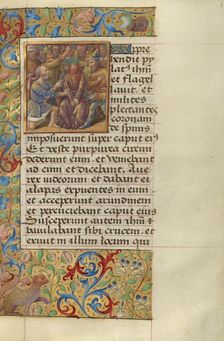 Appre
hendit py
lat9 ihm
et flagel
lauit et
milites
plectantes
coronam
de spinis
imposuerunt super caput ei9
Et veste purpurea circum
dederunt eum et veniebant
ad eum et dicebant Aue
rex iudeorum et dabant ei
alapas expuentes in eum
et acceperunt arundinem
et percuciebant caput eius
Susceperunt autem ihm
baiulabant sibi crucem et
exiuit in illum locum qui